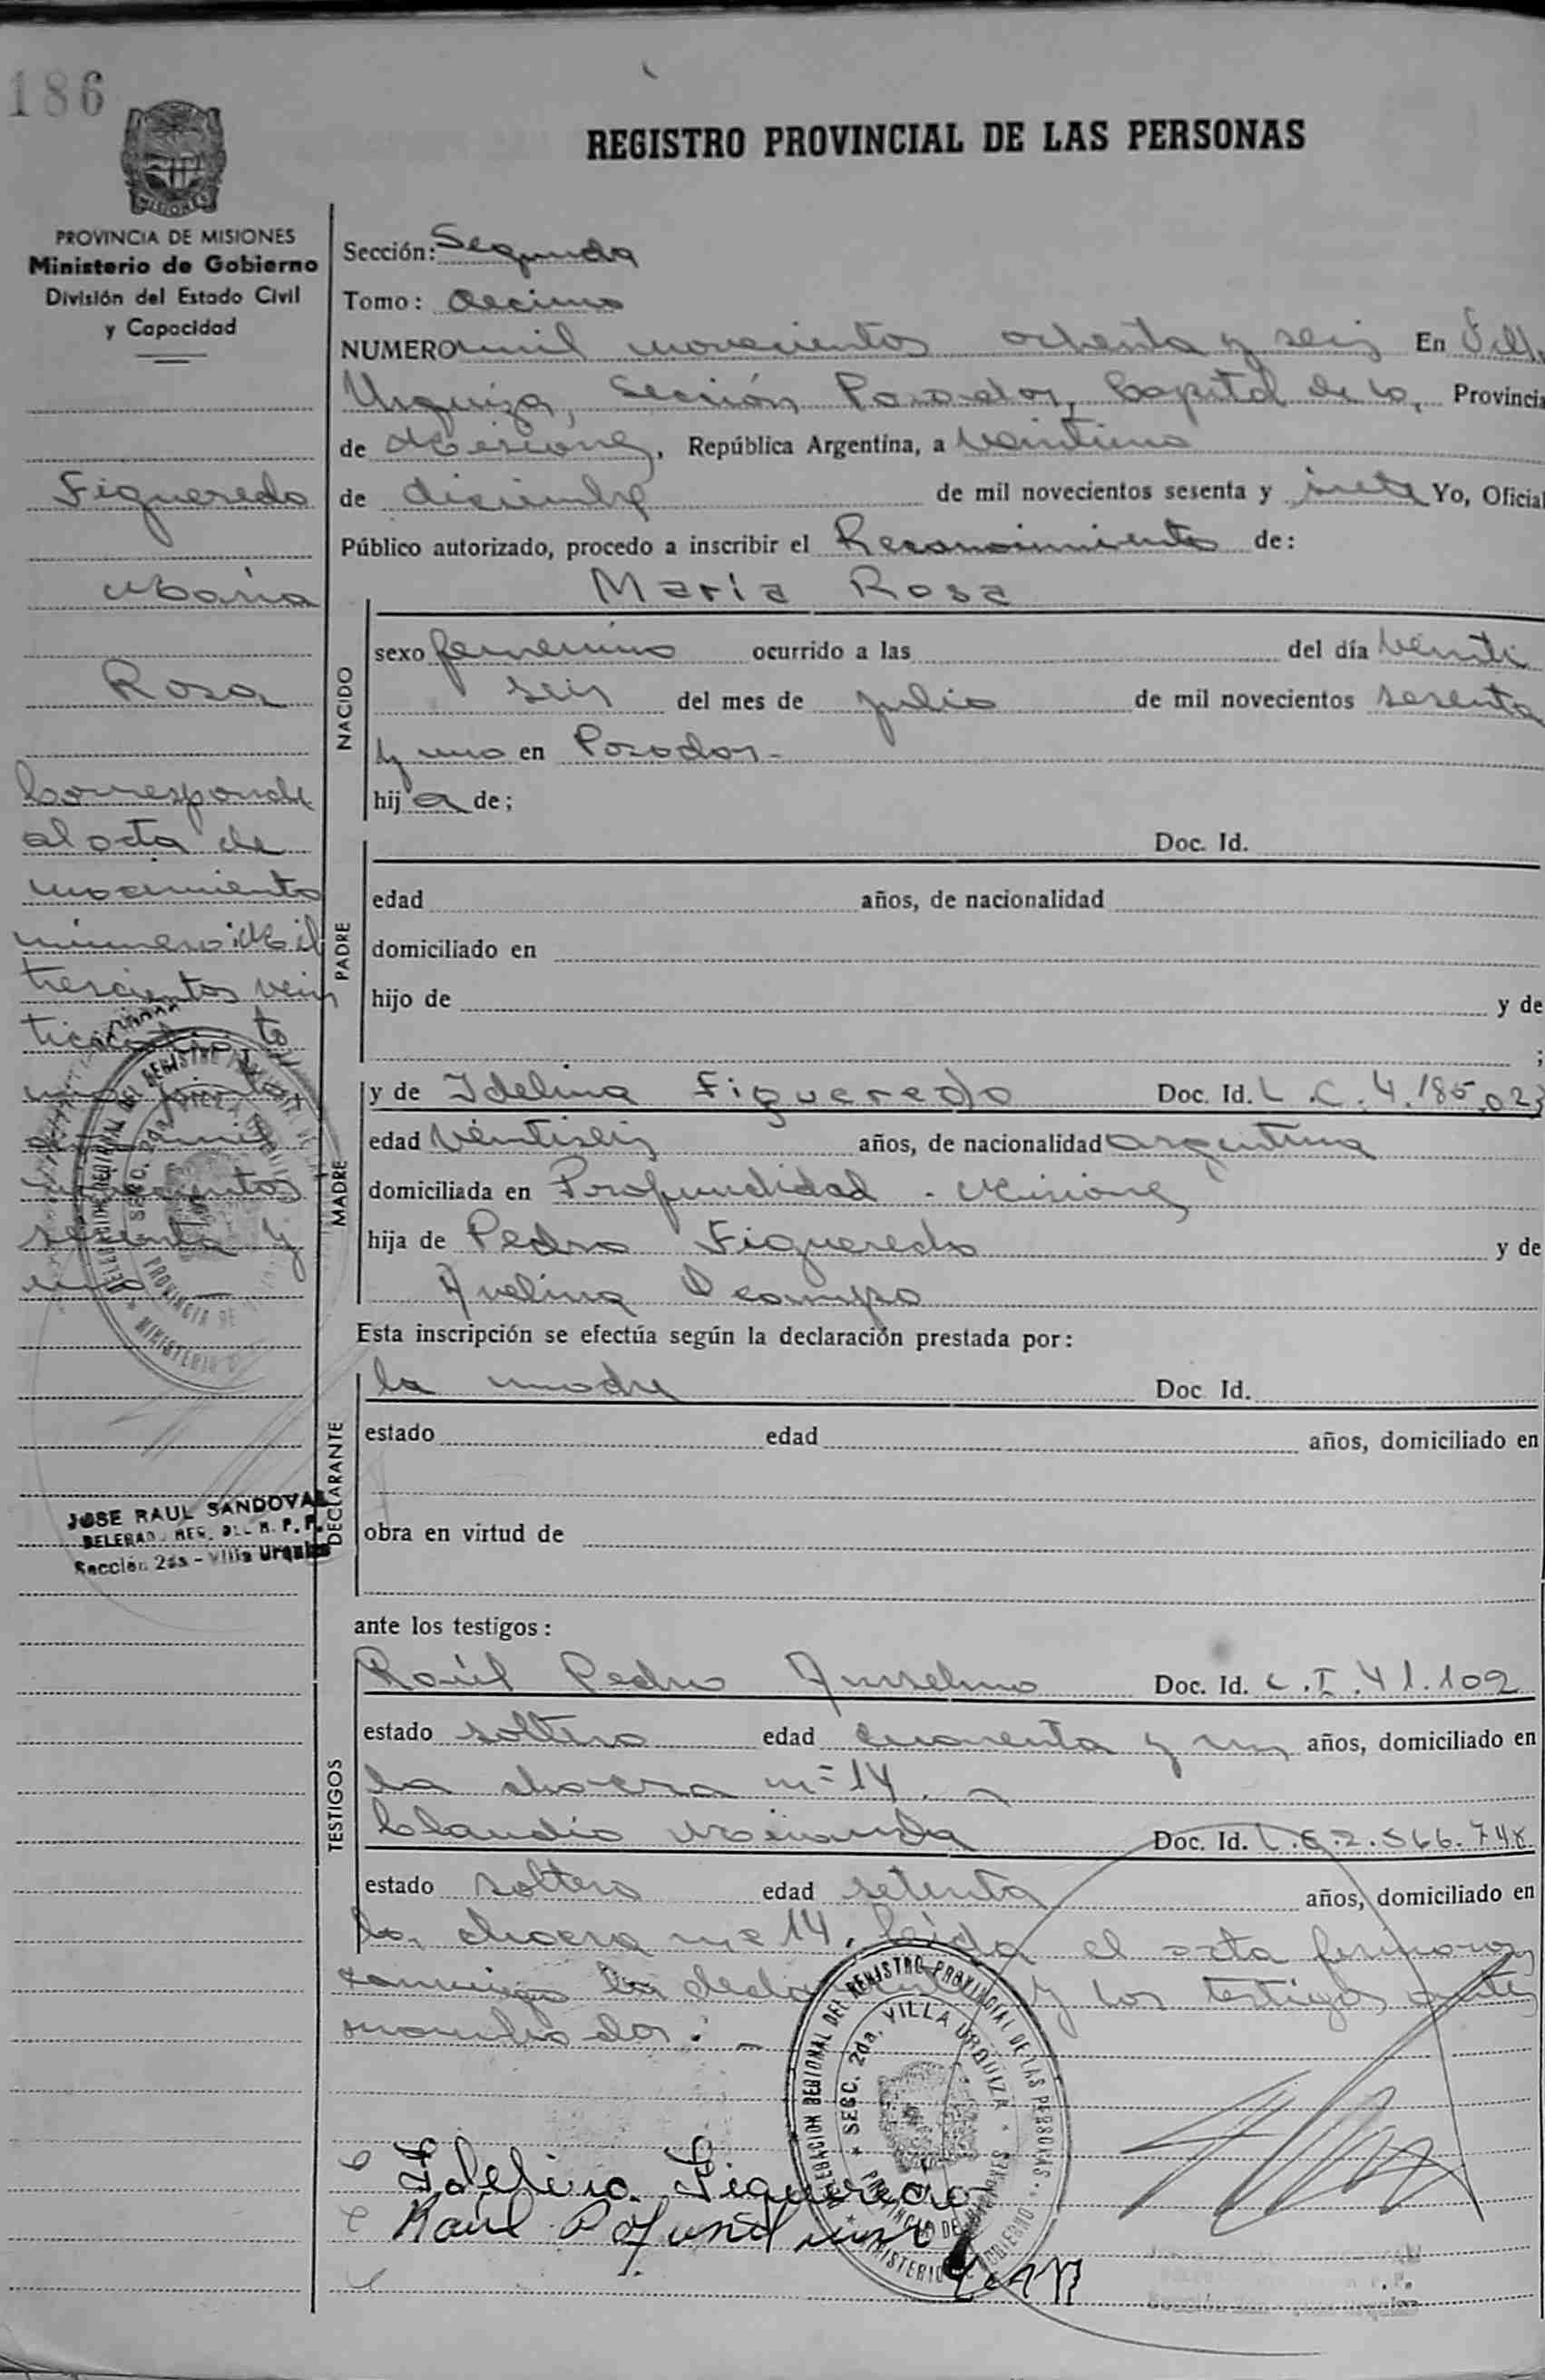 186
REGISTRO PROVINCIAL DE LAS PERSONAS
MISIONES
PROVINCIA DE MISIONES
Ministerio de Gobierno
División del Estado Civil
y Capacidad
Figueredo
Maria
Rosa
Corresponde
al acta de
nacimiento
número: Mil
trescientos vein
sesenta y
uno
JOSE RAUL SANDOVAL
Sección 2da - Villa Urquiza
Sección: Segunda
Tomo: Decimo
NUMERO mil novecientos ochenta y seis En Villa
Urquiza, Sección Posadas, Capital de la, Provincia
de Misiones, República Argentina, a veintiuno
de diciembre de mil novecientos sesenta y siete Yo, Oficial
Público autorizado, procedo a inscribir el Reconocimiento de:
María Rosa
NACIDO
sexo femenino ocurrido a las del día veinti
seis del mes de julio de mil novecientos sesenta
y uno en Posadas-
hija de;
PADRE
Doc. Id.
edad años, de nacionalidad
domiciliado en
hijo de y de
;
MADRE
y de Idelina Figueredo Doc. Id. L.C. 4.185.023
edad veintiseis años, de nacionalidad argentina
domiciliada en Profundidad - Misiones
hija de Pedro Figueredo y de
Avelina Ocampo
Esta inscripción se efectúa según la declaración prestada por:
DECLARANTE
la madre Doc Id.
estado edad años, domiciliado en
obra en virtud de
ante los testigos:
TESTIGOS
Raúl Pedro Anselmo Doc. Id. C.I. 41.109
estado soltero edad cuarenta y un años, domiciliado en
la chacra nº 14.
Claudio Miranda Doc. Id. 2.566.748
estado soltero edad setenta años, domiciliado en
la chacra nº 14. leida el acta firmaron
conmigo la declarante y los testigos antes
nombrados.-
DELEGACION REGIONAL DEL REGISTRO PROVINCIAL DE LAS PERSONAS
SECC. 2da. VILLA URQUIZA
PROVINCIA DE MISIONES
MINISTERIO DE GOBIERNO
Idelina Figueredo
Raúl